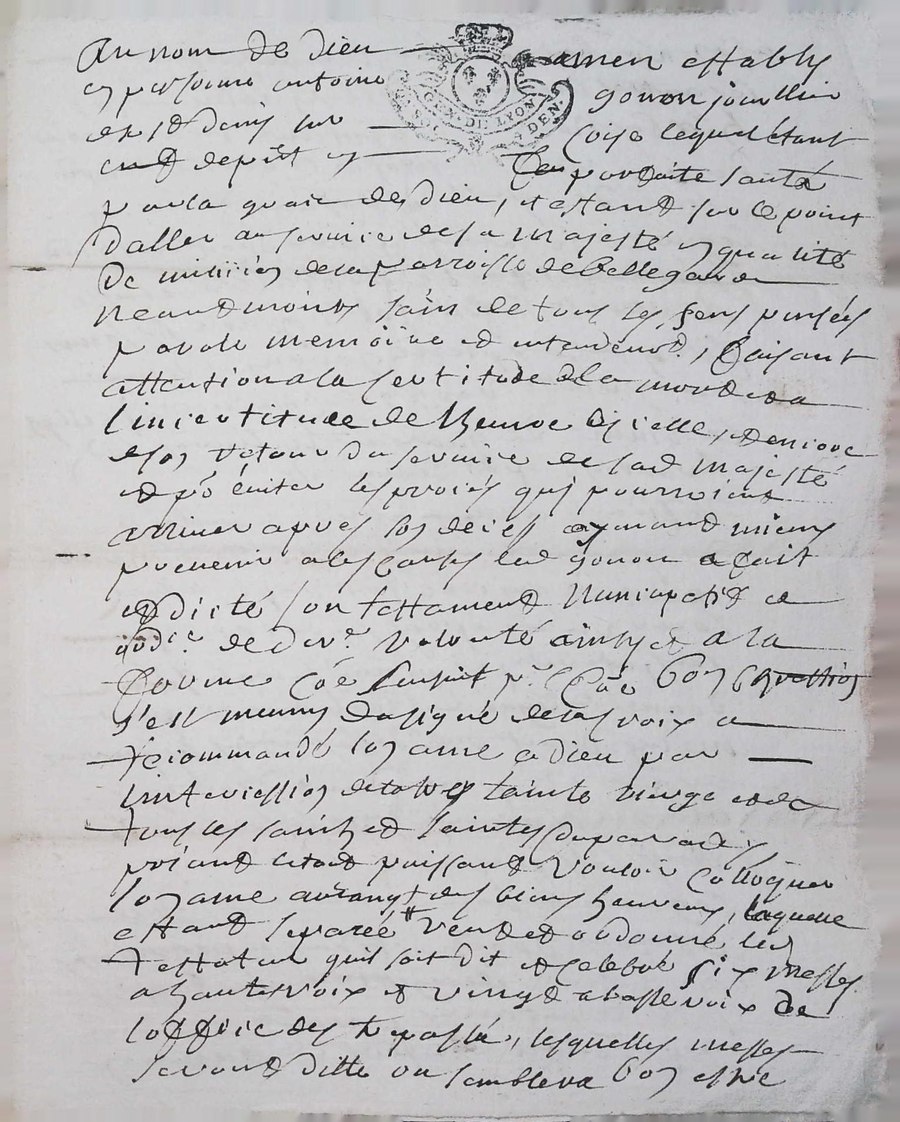 Au nom de dieu amen estably
en personne antoine gonon journallier
de st denis sur Coise lequel étant
en parfaite santé
par la grace de dieu, et estand sur le point
d'aller au service de sa majesté en qualité
de milicien de la parroisse de Bellegarde
neantmoins sain de tous ses sens pensées
parole memoire et entendement, faisant
attention a la certitude de la mort et a
l'incertitude de l'heure d'icelle, et encore
de son retour du service de sad majesté
et pr éviter les procés qui pourroient
arriver apres son deces aymand mieux
prevenir led gonon a fait
et dicté son testament nuncupatif et
ordre de derre volonté ainsy et a la
forme côe sensuit pr côe bon chrestien
s'est muny du signe de la croix a
recommandé son ame a dieu par
lintercession de la très sainte vierge et de
tous les saints et saintes du paradis
priand le tout puissand vouloir colloquer
son ame au rang des biens heureux, laquelle
estand separée veut et ordonne led
testateur quil soit dit et celebré six messes
a hautes voix et vingt a basse voix de
loffice des trepassés, lesquelles messes
seront ditte ou semblera bon estre
GEN. DE LYON
DEN.